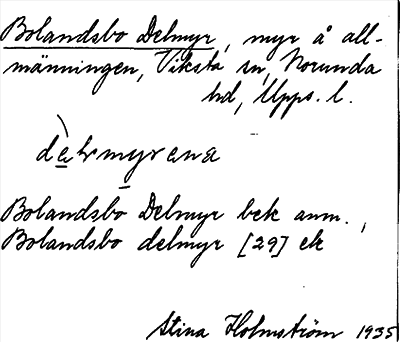 Bolandsbo Delmyr, myr å all-
männingen, Viksta sn, Norunda
hd, Upps. l.
dèlmyrena
Bolandsbo Delmyr bek anm.,
Bolandsbo delmyr [29] ek
Stina Holmström 1935